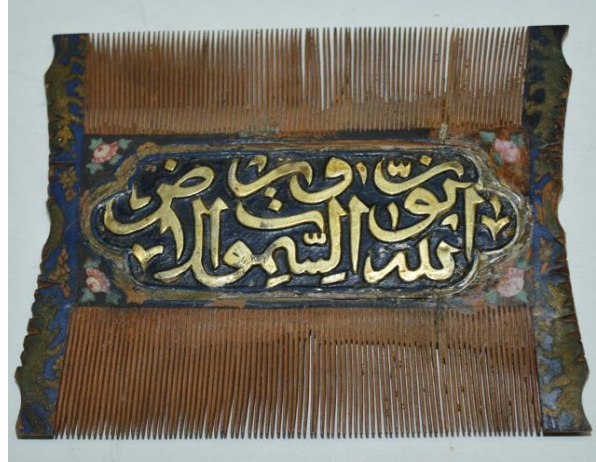 الله نور السّموات والارض